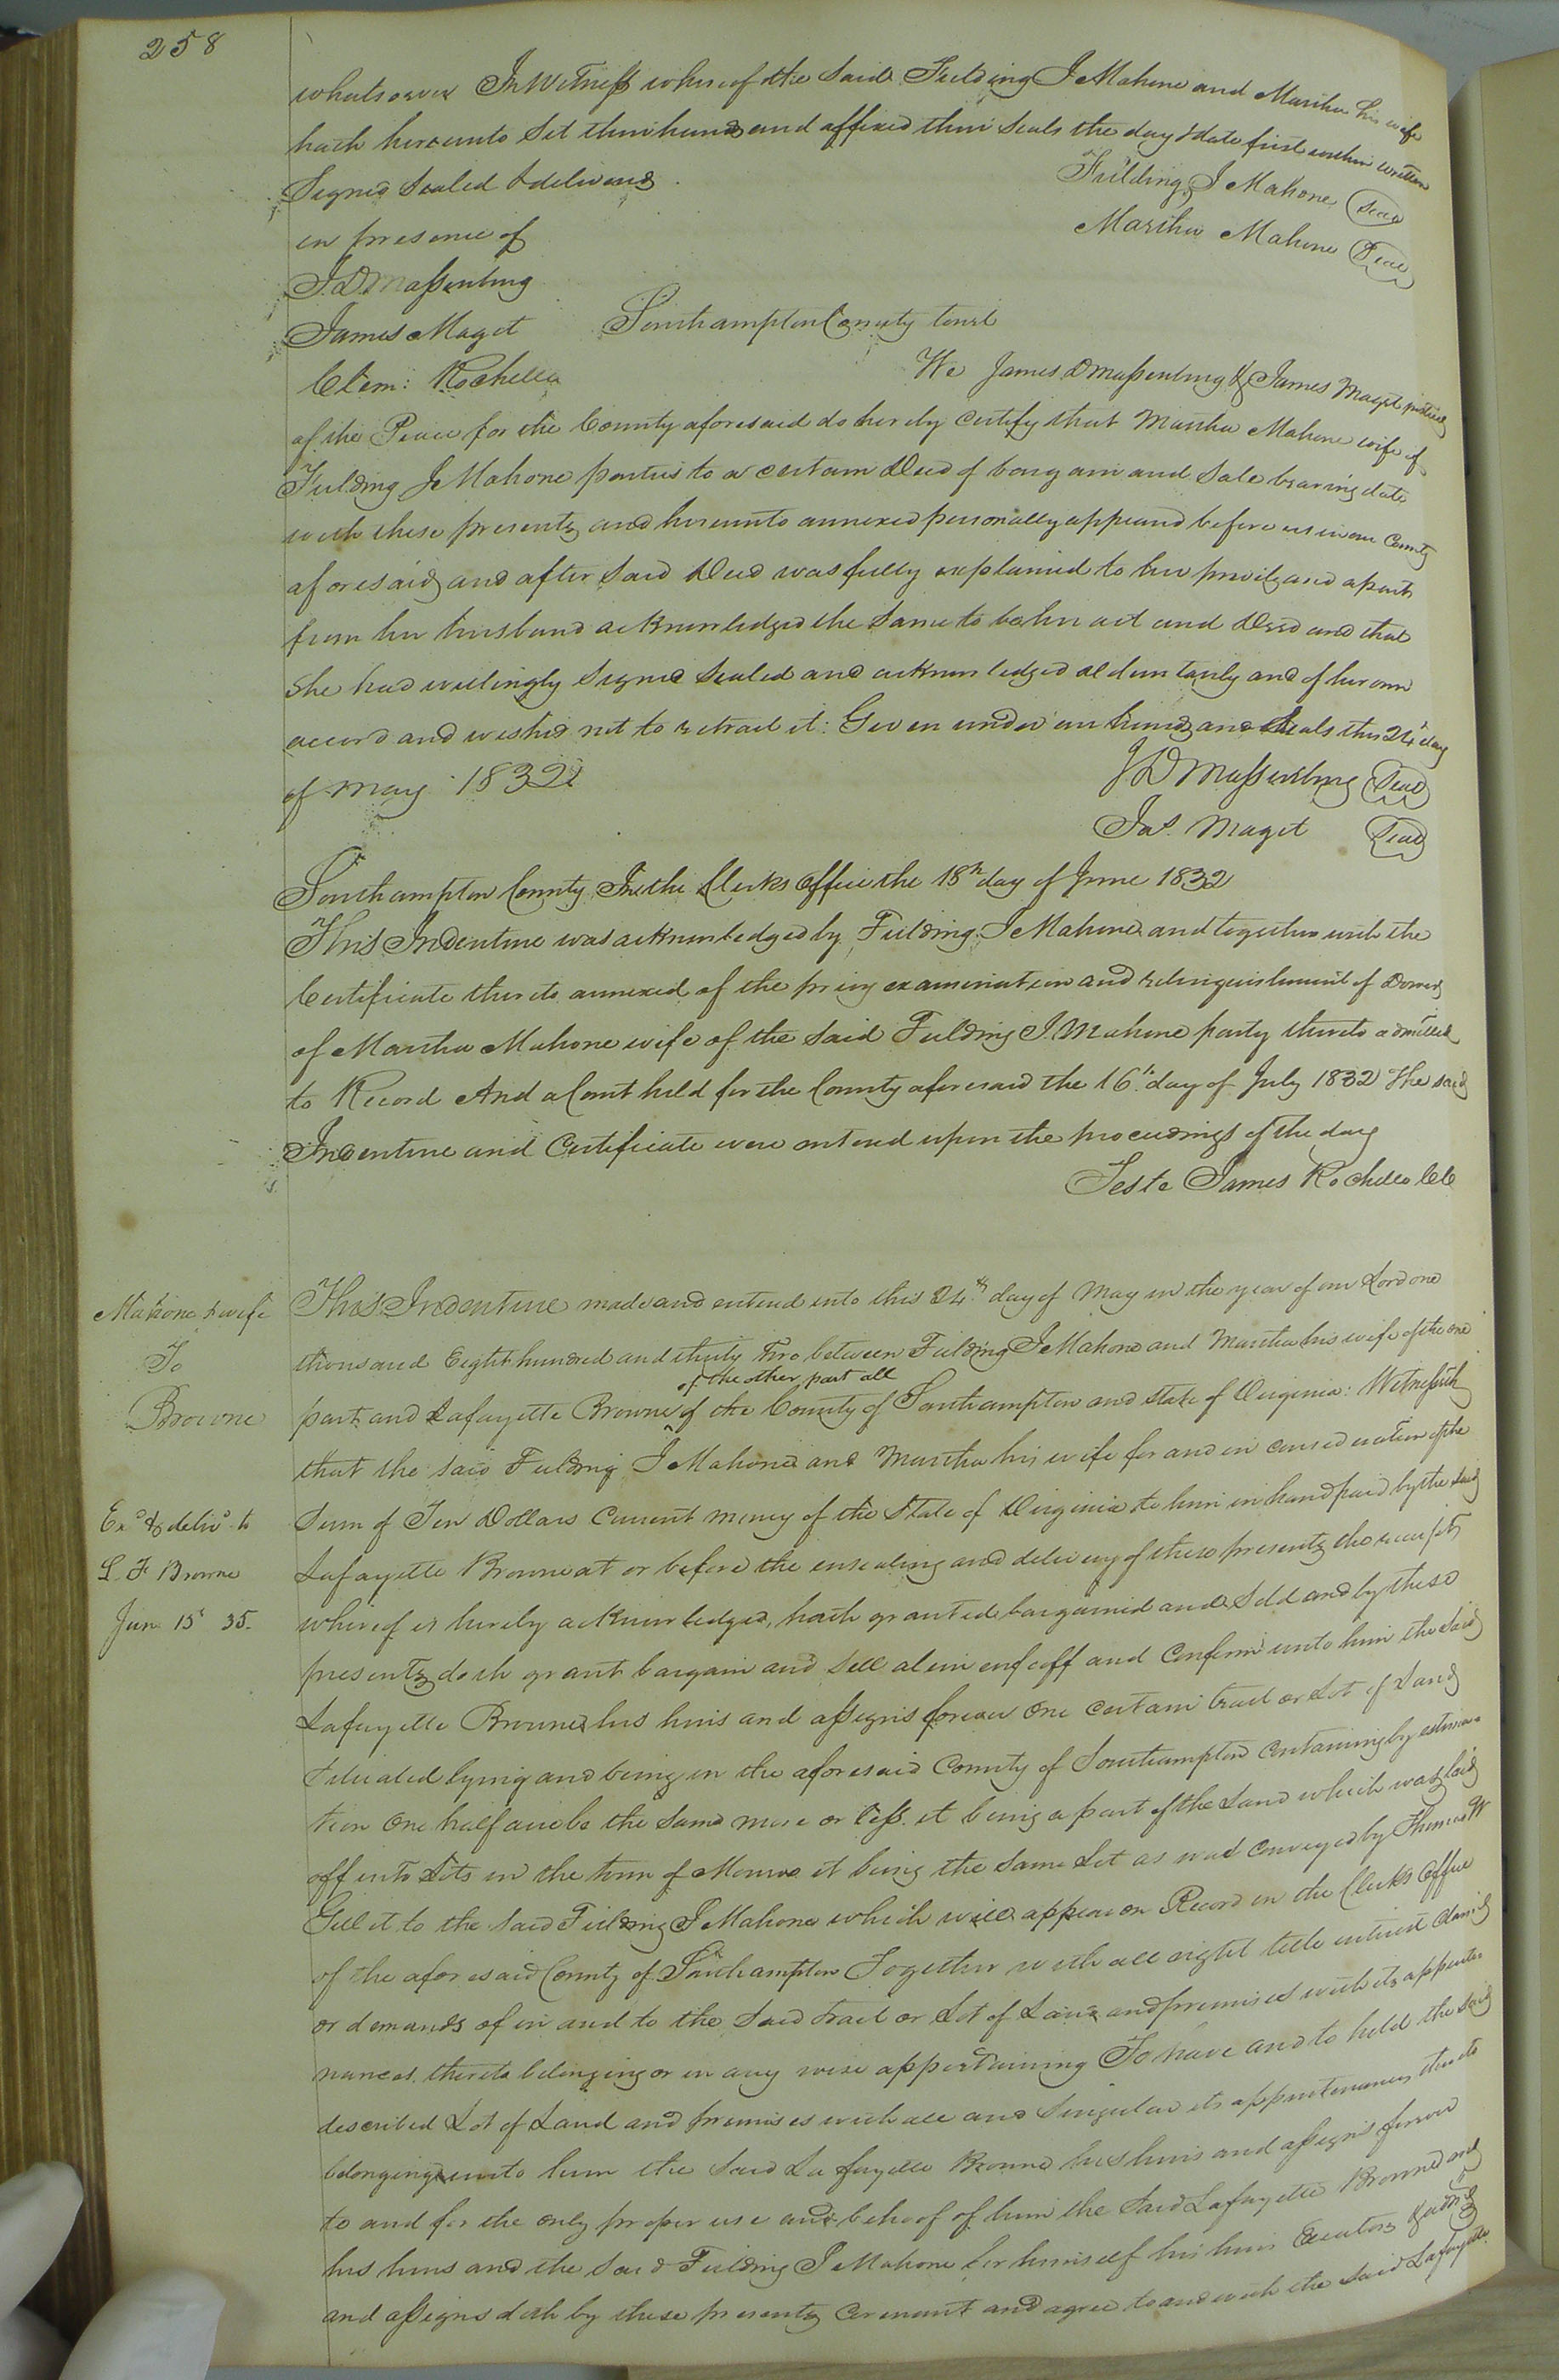 258
whatsoever In Witness whereof the Said Fielding J Mahone and Martha his wife
hath hereunto Set their hands and affixed their Seals the day & date first within written
Signed Sealed & delivered
Fielding J Mahone Seal
in presence of
Martha Mahone Seal
J. D. Massenburg
James Maget Southampton County towit
Clem: Rochelle
We James D Massenburg & James Maget justices
of the Peace for the County aforesaid do hereby certify that Martha Mahone wife of
Fielding J Mahone parties to a certain Deed of bargain and Sale bearing date
with these presents and hereunto annexed personally appeared before us in our County
aforesaid and after Said Deed was fully explained to her privily and apart
from her husband acknowledged the Same to be her act and Deed and that
She had willingly Signed Sealed and acknowledged voluntarily and of her own
accord and wished not to retract it: Given under our hands and Seals this 24 day
of May 1832
J D Massenburg Seal
Jas. Maget Seal
Southampton County In the Clerks Office the 18th day of June 1832
This Indenture was acknowledged by Fielding J Mahone and together with the
Certificate thereto annexed of the privy examination and relinquishment of Dower
of Martha Mahone wife of the Said Fielding J. Mahone party thereto admitted
to Record And a Court held for the County aforesaid the 16th day of July 1832 The said
Indenture and Certificate were entered upon the proceedings of the day
Teste James Rochelle ClC
Mahone & wife
To
Browne
Exd & delivd to
L. F Browne
Jun 15 35.
This Indenture made and entered into this 24th day of May in the year of our Lord one
thousand Eight hundred and thirty Two between Fielding J Mahone and Martha his wife of the one
of the other part all
part and Lafayette Browne of the County of Southampton and state of Virginia: Witnesseth
that the said Fielding J Mahone and Martha his wife for and in consideration of the
Sum of Ten Dollars Current money of the State of Virginia to him in hand paid by the said
Lafayette Browne at or before the ensealing and delivery of these presents the receipt
whereof is hereby acknowledged, hath granted bargained and Sold and by these
presents doth grant bargain and sell alien enfeoff and Confirm unto him the said
Lafayette Browne his heirs and assigns forever One certain tract or Lot of Land
Situated lying and being in the aforesaid County of Southampton Containing by estima-
tion One half acre be the Same more or less. it being a part of the Land which was laid
off into Lots in the town of Monroe it being the Same Lot as was Conveyed by Thomas W
Gillit to the said Fielding J Mahone which will appear on Record in the Clerks Office
of the aforesaid County of Southampton Together with all right title interest claims
or demands of in and to the Said tract or Lot of Land and premises with its appurte-
nances thereto belonging or in any wise appertaining To have and to hold the said
described Lot of Land and premises with all and Singular its appurtenances thereto
belonging unto him the Said Lafayette Browne his heirs and assigns forever
to and for the only proper use and behoof of him the Said Lafayette Browne and
his heirs and the Said Fielding J Mahone for himself his heirs Executors & adms
and assigns doth by these presents Covenant and agree to and with the said Lafayette